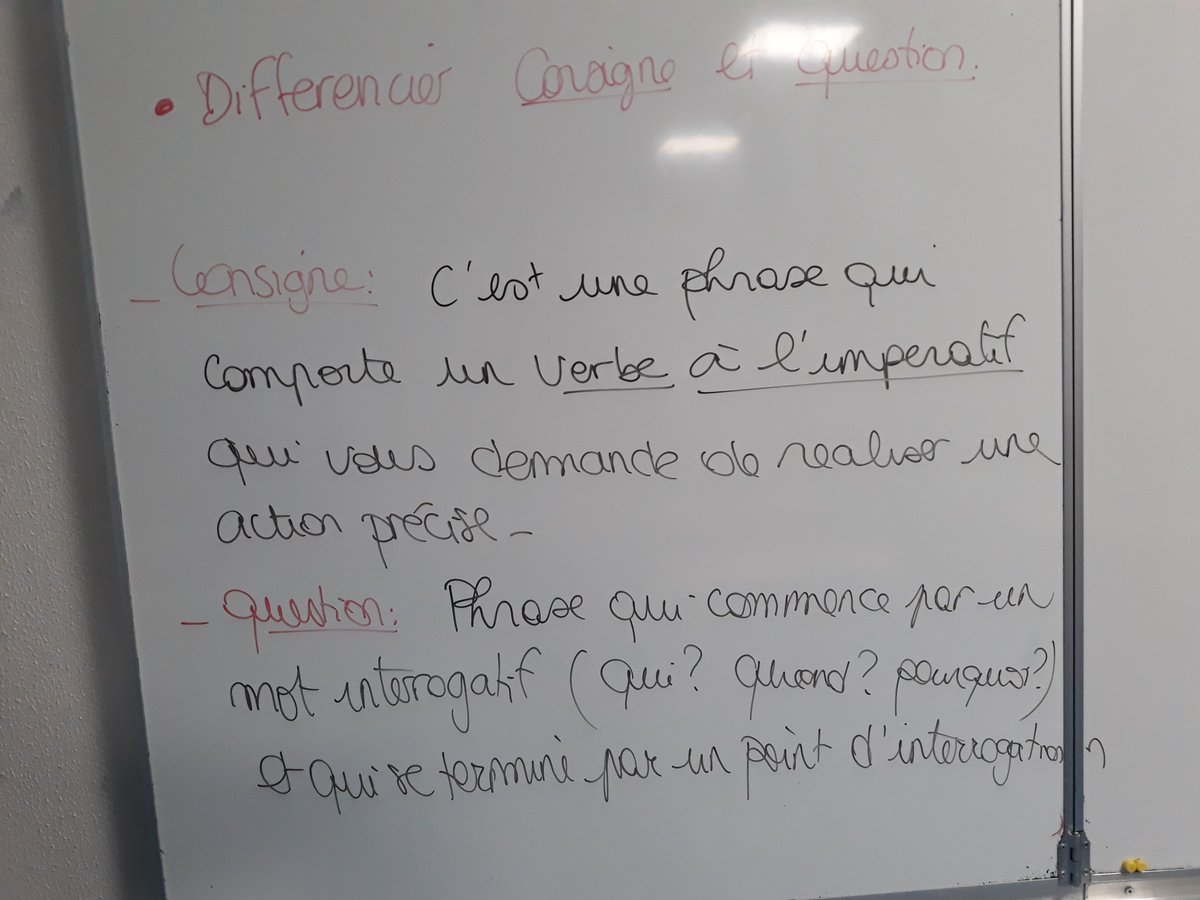 • Differencier Consigne et Question.
_ Consigne: C'est une phrase qui
comporte un verbe à l'imperatif
qui vous demande de realiser une
action précise_
_ Question: Phrase qui commence par un
mot interrogatif (Qui? Quand? pourquoi?)
et qui se termine par un point d'interrogation